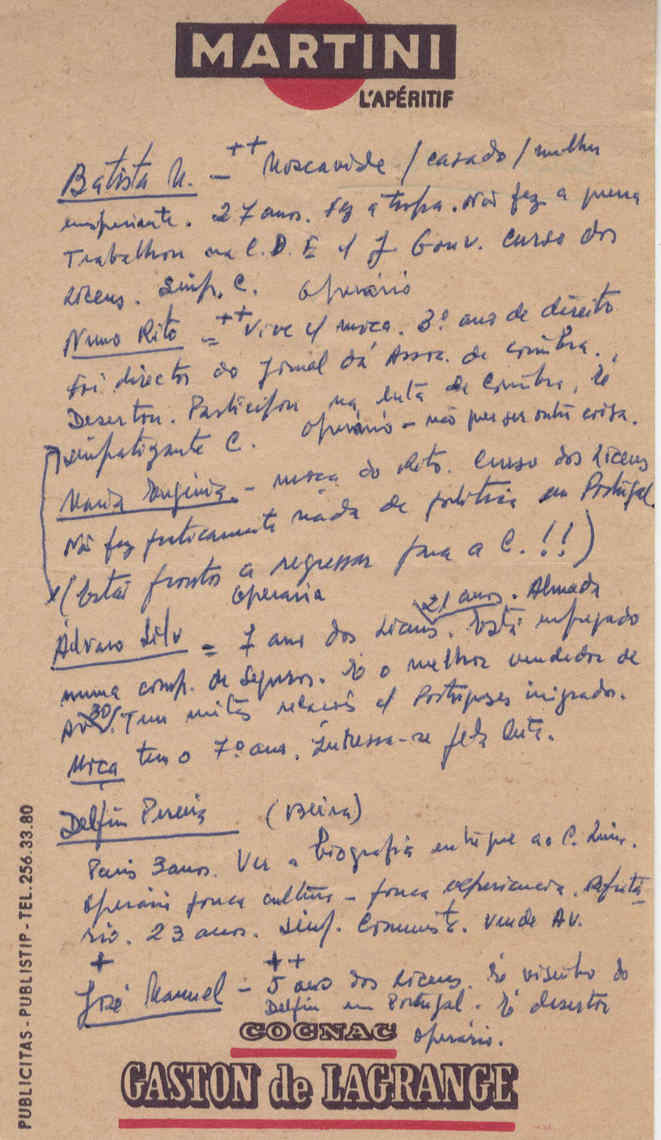 MARTINI
L'APÉRITIF
Batista M. - ++ Moscavide / casado / mulher
27 anos. Fez a tropa. Não fez a guerra
Trabalhou na C.D.E c/ J. Gouv. curso dos
Liceus. Simp. C. Operário
Nuno Rito = ++ Vive c/ moça. 3º ano de direito
Foi director do Jornal da Assoc. de Coimbra.
Desertou. Participou na luta de Coimbra. É
simpatizante C. Operário - não quer ser outra coisa.
Maria Eugénia - moça do Rito. Curso dos Liceus
Não fez praticamente nada de política em Portugal.
(Estão prontos a regressar para a C.!!)
Operária
Álvaro Silv = 7 ano dos Liceus. 21 anos. Almada
Está empregado
numa comp. de Seguros. É o melhor vendedor de
AV. 30/. Tem muitas relações c/ Portugueses imigrados.
Moça tem o 7º ano. Interessa-se pela luta.
Delfim Pereira (Beira)
Paris 3 anos. Ver a biografia entregue ao C.
Operário pouca cultura - pouca experiencia. Refractá-
rio. 23 anos. Simp. Comunist. Vende AV.
+ ++
José Manuel - 5 ano dos Liceus. É visinho do
Delfim em Portugal. É desertor
Operário.
COGNAC
GASTON de LAGRANGE
PUBLICITAS - PUBLISTIP - TEL. 256.33.80